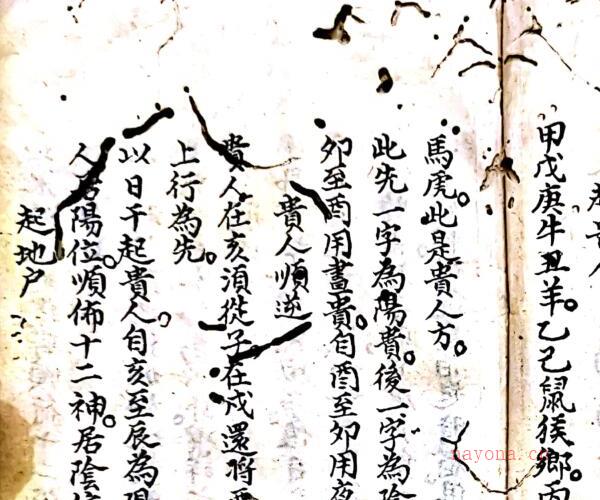 甲戊庚牛丑羊。乙己鼠猴鄉。丙
馬虎。此是貴人方。
此先一字為陽貴。後一字為陰
卯至酉用晝貴。自酉至卯用夜
貴人順逆
貴人在亥須從子在戌還將
上行為先。
以日干起貴人自亥至辰為陽
人居陽位。順佈十二神。居陰位
起地户
nayona.cn